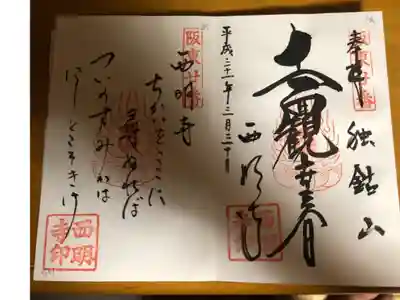 阪東廿番
奉拝 独鈷山
十一面観世音
西明寺
平成二十一年三月三十日
阪東廿番
西明寺
ちかいをここに
尋ぬれば
ついのすみかは
にしとこそきけ
西明寺印